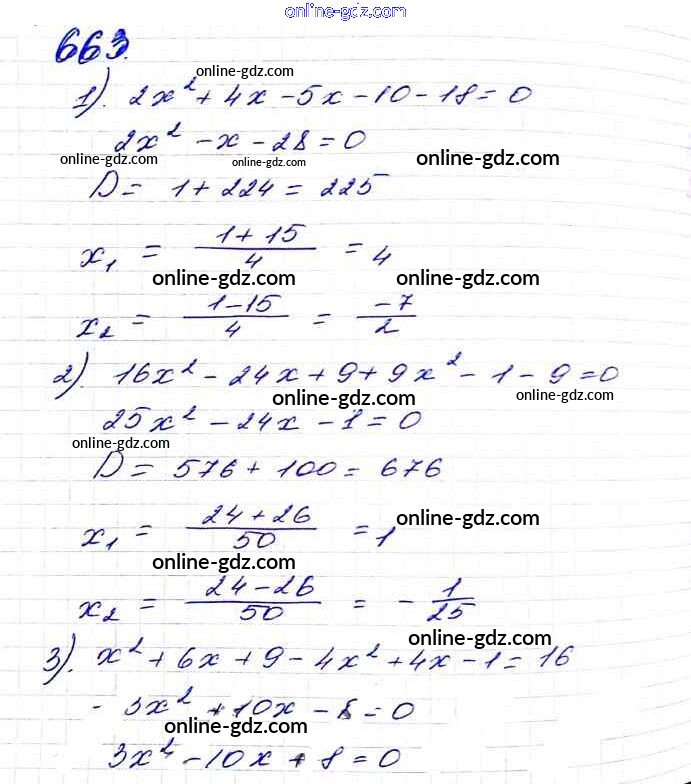 online-gdz.com
663.
online-gdz.com
1). 2x² + 4x - 5x - 10 - 18 = 0
2x² - x - 28 = 0
online-gdz.com online-gdz.com online-gdz.com
D = 1 + 224 = 225
x₁ = (1 + 15)/4 = 4
online-gdz.com online-gdz.com
x₂ = (1 - 15)/4 = -7/2
2). 16x² - 24x + 9 + 9x² - 1 - 9 = 0
online-gdz.com online-gdz.com
25x² - 24x - 1 = 0
online-gdz.com
D = 576 + 100 = 676
x₁ = (24 + 26)/50 = 1
online-gdz.com
online-gdz.com
x₂ = (24 - 26)/50 = - 1/25
online-gdz.com
3). x² + 6x + 9 - 4x² + 4x - 1 = 16
- 3x² + 10x - 8 = 0
online-gdz.com
3x² - 10x + 8 = 0